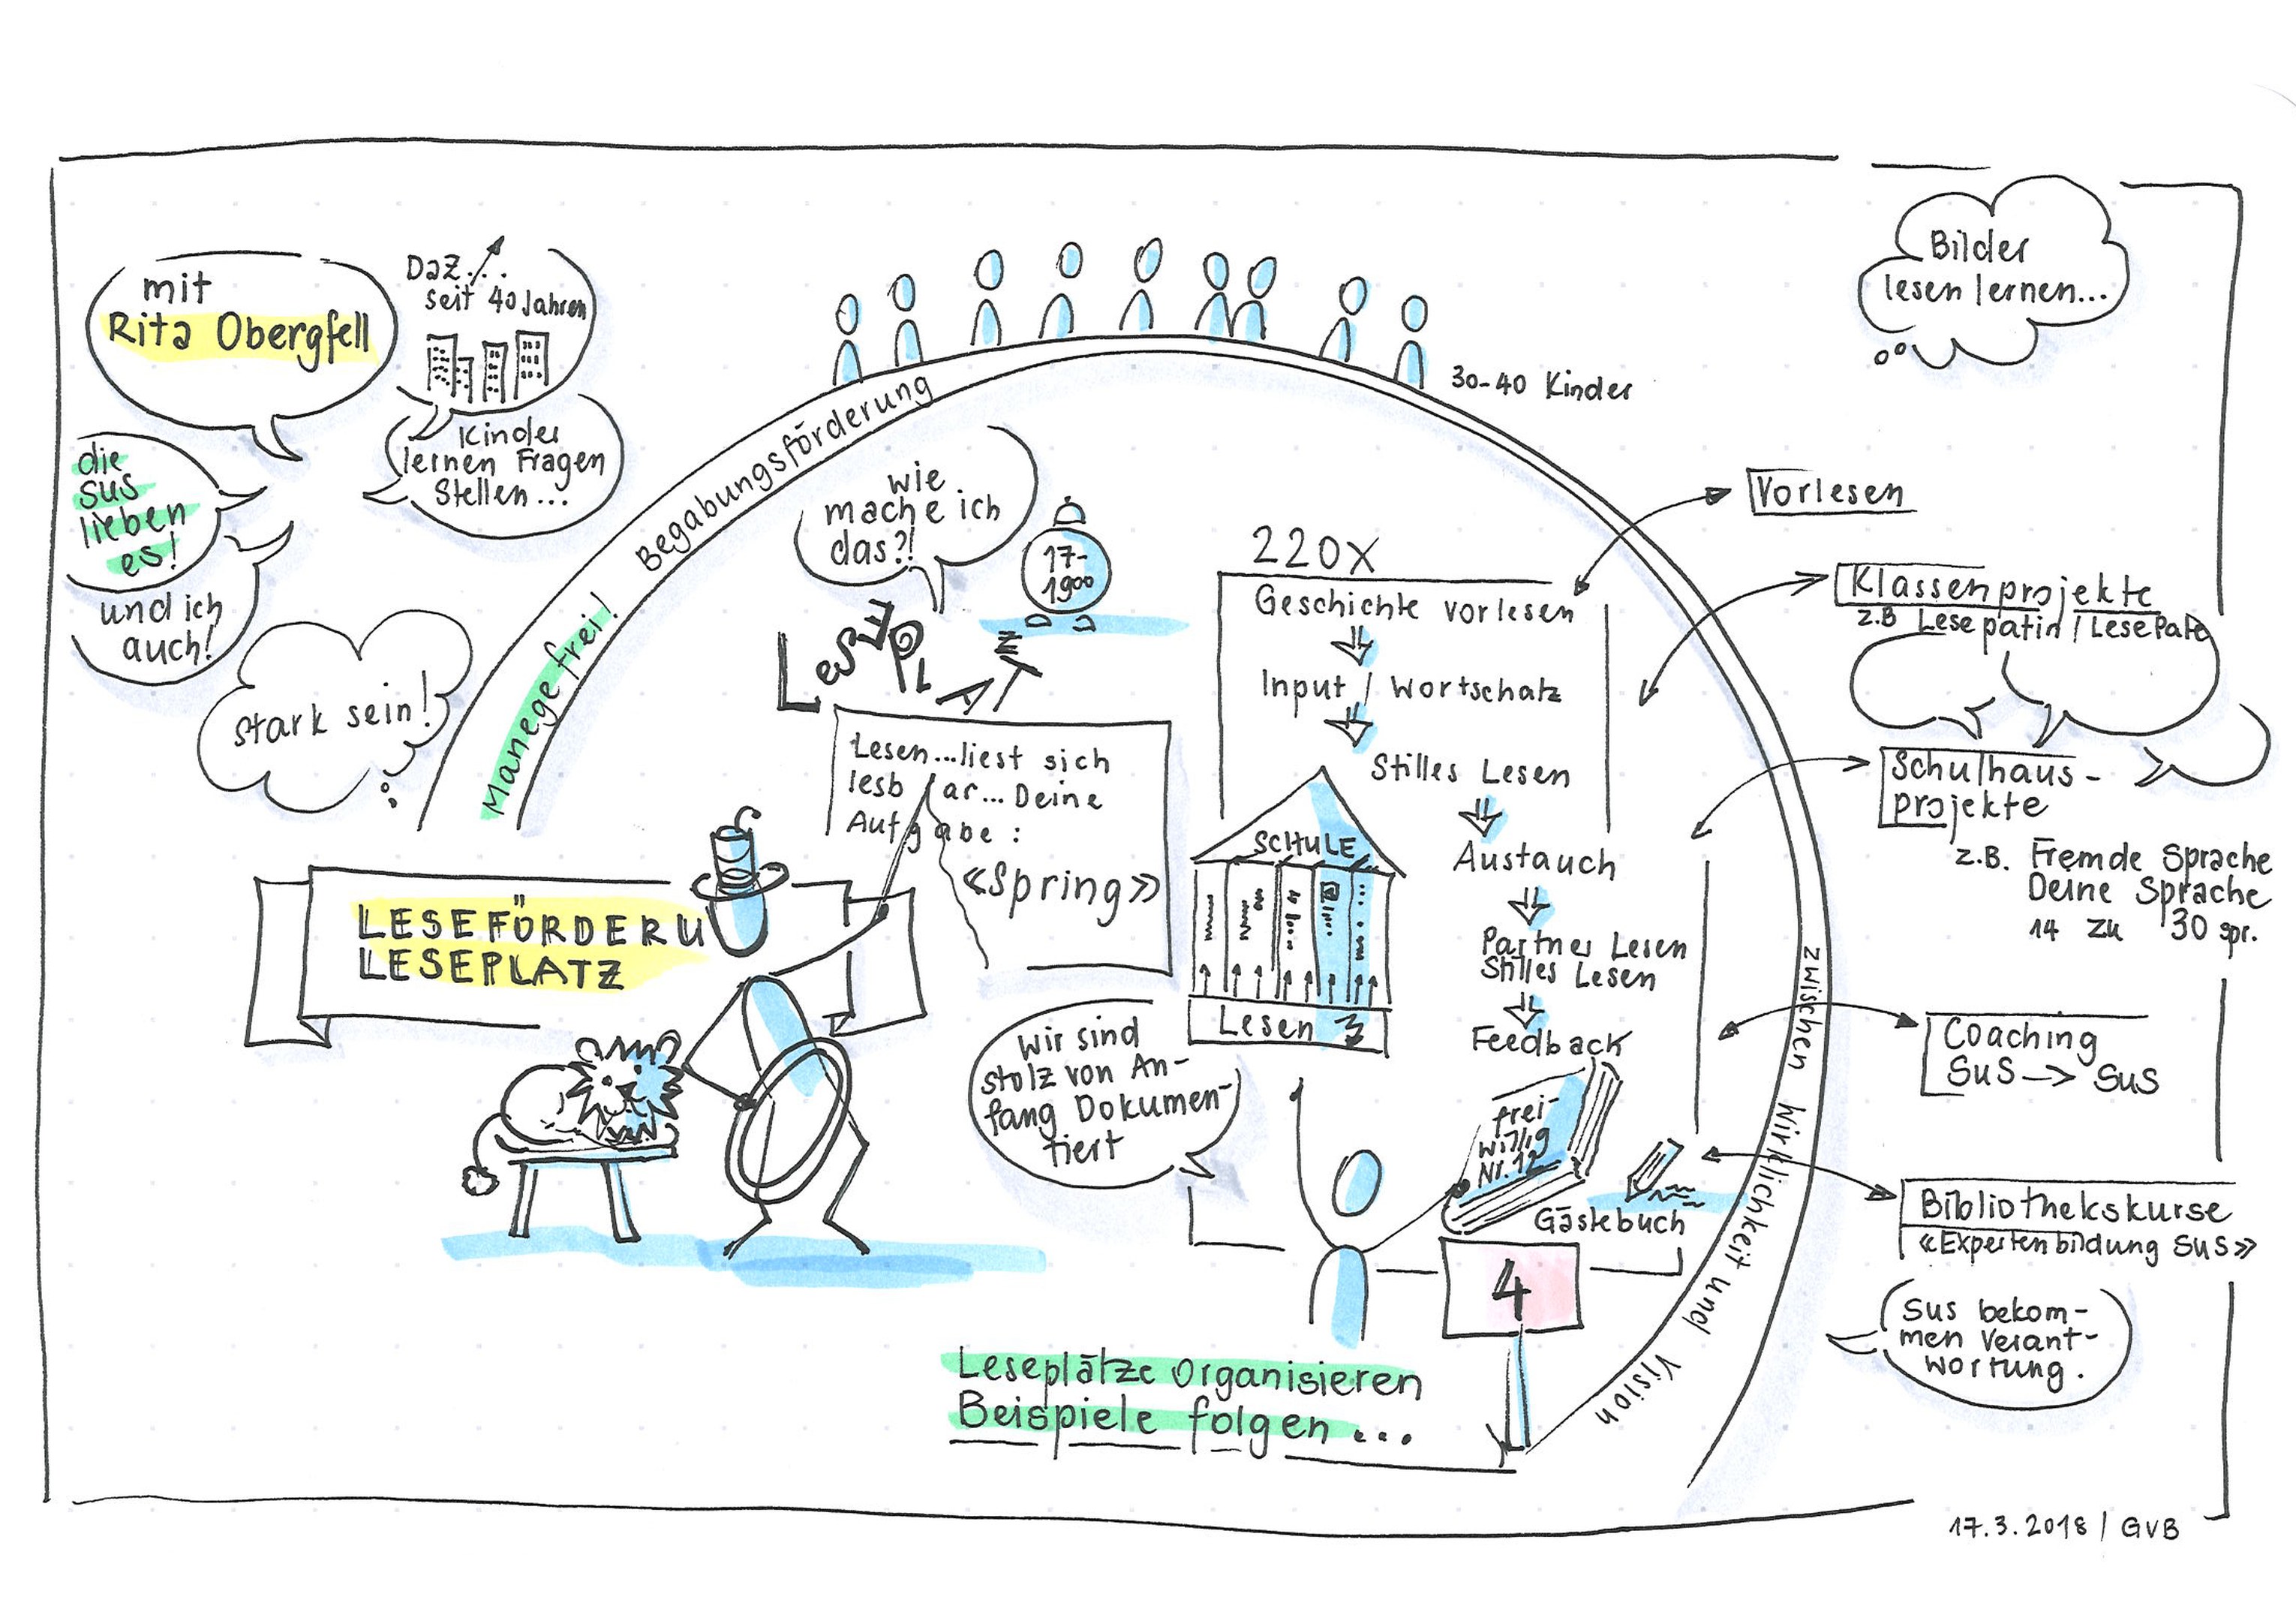 mit
Rita Obergfell
DaZ...
seit 40 Jahren
Kinder
lernen Fragen
Stellen...
die
SuS
lieben
es!
und ich
auch!
stark sein!
Manege frei!
Begabungsförderung
zwischen Wirklichkeit und Vision
30-40 Kinder
Bilder
lesen lernen...
wie
mache ich
das?!
17-
19⁰⁰
LESEPLATZ
Lesen...liest sich
lesb ar... Deine
Aufgabe:
«Spring»
LESEFÖRDERU
LESEPLATZ
220x
Geschichte vorlesen
Input / Wortschatz
Stilles Lesen
Austauch
Partner Lesen
Stilles Lesen
Feedback
SCHULE
Lesen
Wir sind
stolz von An-
fang Dokumen-
tiert
frei-
willig
Nr. 12
Gästebuch
4
Leseplätze organisieren
Beispiele folgen...
Vorlesen
Klassenprojekte
z.B Lesepatin / LesePate
Schulhaus-
projekte
z.B. Fremde Sprache
Deine Sprache
14 zu 30 spr.
Coaching
SuS → SuS
Bibliothekskurse
«Expertenbildung SuS»
SuS bekom-
men Verant-
wortung.
17.3.2018 / GvB